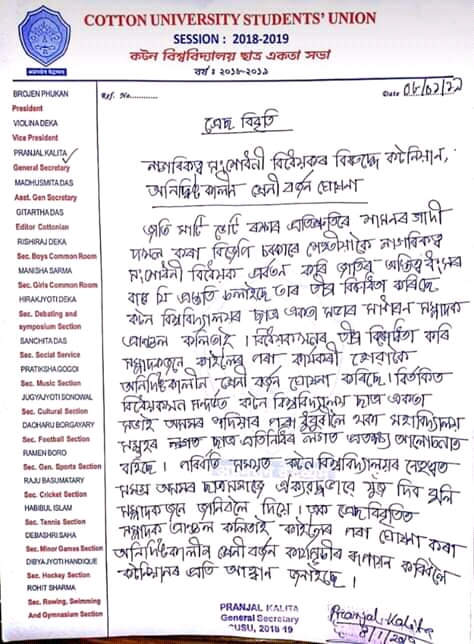 COTTON UNIVERSITY STUDENTS' UNION
SESSION : 2018-2019
কটন বিশ্ববিদ্যালয় ছাত্ৰ একতা সভা
বৰ্ষ : ২০১৮-২০১৯
BROJEN PHUKAN
President
VIOLINA DEKA
Vice President
PRANJAL KALITA
General Secretary
MADHUSMITA DAS
Asst. Gen Secretary
GITARTHA DAS
Editor Cottonian
RISHIRAJ DEKA
Sec. Boys Common Room
MANISHA SARMA
Sec. Girls Common Room
HIRAKJYOTI DEKA
Sec. Debating and
symposium Section
SANCHITA DAS
Sec. Social Service
PRATIKSHA GOGOI
Sec. Music Section
JUGYAJYOTI SONOWAL
Sec. Cultural Section
DAOHARU BORGAYARY
Sec. Football Section
RAMEN BORO
Sec. Gen. Sports Section
RAJU BASUMATARY
Sec. Cricket Section
HABIBUL ISLAM
Sec. Tennis Section
DEBASHRI SAHA
Sec. Minor Games Section
DIBYAJYOTI HANDIQUE
Sec. Hockey Section
ROHIT SHARMA
Sec. Rowing, Swimming
And Gymnasium Section
Ref. No............
Date
প্ৰেছ বিবৃতি
নাগৰিকত্ব সংশোধনী বিধেয়কৰ বিৰুদ্ধে কটনিয়ান,
অনিৰ্দিষ্ট কালীন শ্ৰেণী বৰ্জন ঘোষণা
জাতি মাটি ভেটি ৰক্ষাৰ প্ৰতিশ্ৰুতিৰে শাসনৰ গাদী
দখল কৰা বিজেপি চৰকাৰে নাগৰিকত্ব
সংশোধনী বিধেয়ক প্ৰৱৰ্তন কৰি জাতিৰ অস্তিত্ব ধ্বংসৰ
বাবে যি প্ৰস্তুতি চলাইছে তাৰ তীব্ৰ বিৰোধিতা কৰিছে
কটন বিশ্ববিদ্যালয়ৰ ছাত্ৰ একতা সভাৰ সাধাৰণ সম্পাদক
প্ৰাঞ্জল কলিতাই । বিধেয়কখনৰ তীব্ৰ বিৰোধিতা কৰি
সম্পাদকজনে কাইলৈৰ পৰা কাৰ্যকৰী হোৱাকৈ
অনিৰ্দিষ্টকালীন শ্ৰেণী বৰ্জন ঘোষণা কৰিছে । বিতৰ্কিত
বিধেয়কখন সন্দৰ্ভত কটন বিশ্ববিদ্যালয় ছাত্ৰ একতা
সভাই অসমৰ শদিয়াৰ পৰা ধুবুৰীলৈ থকা মহাবিদ্যালয়
সমূহৰ লগতে ছাত্ৰ প্ৰতিনিধিৰ লগত আলোচনাত
বহিছে । পৰৱৰ্তী সময়ত কটন বিশ্ববিদ্যালয়ৰ নেতৃত্বত
সমগ্ৰ অসমৰ ছাত্ৰসমাজে ঐক্যবদ্ধভাৱে যুঁজ দিব বুলি
সম্পাদক জনে জানিবলৈ দিয়ে । এক প্ৰেছ বিবৃতিত
সম্পাদক প্ৰাঞ্জল কলিতাই কাইলৈৰ পৰা ঘোষণা কৰা
অনিৰ্দিষ্টকালীন শ্ৰেণী বৰ্জন কাৰ্যসূচীৰ ৰূপায়ন কৰিবলৈ
কটনিয়ানৰ প্ৰতি আহ্বান জনাইছে ।
PRANJAL KALITA
General Secretary
CUSU, 2018-19
Pranjal Kalita